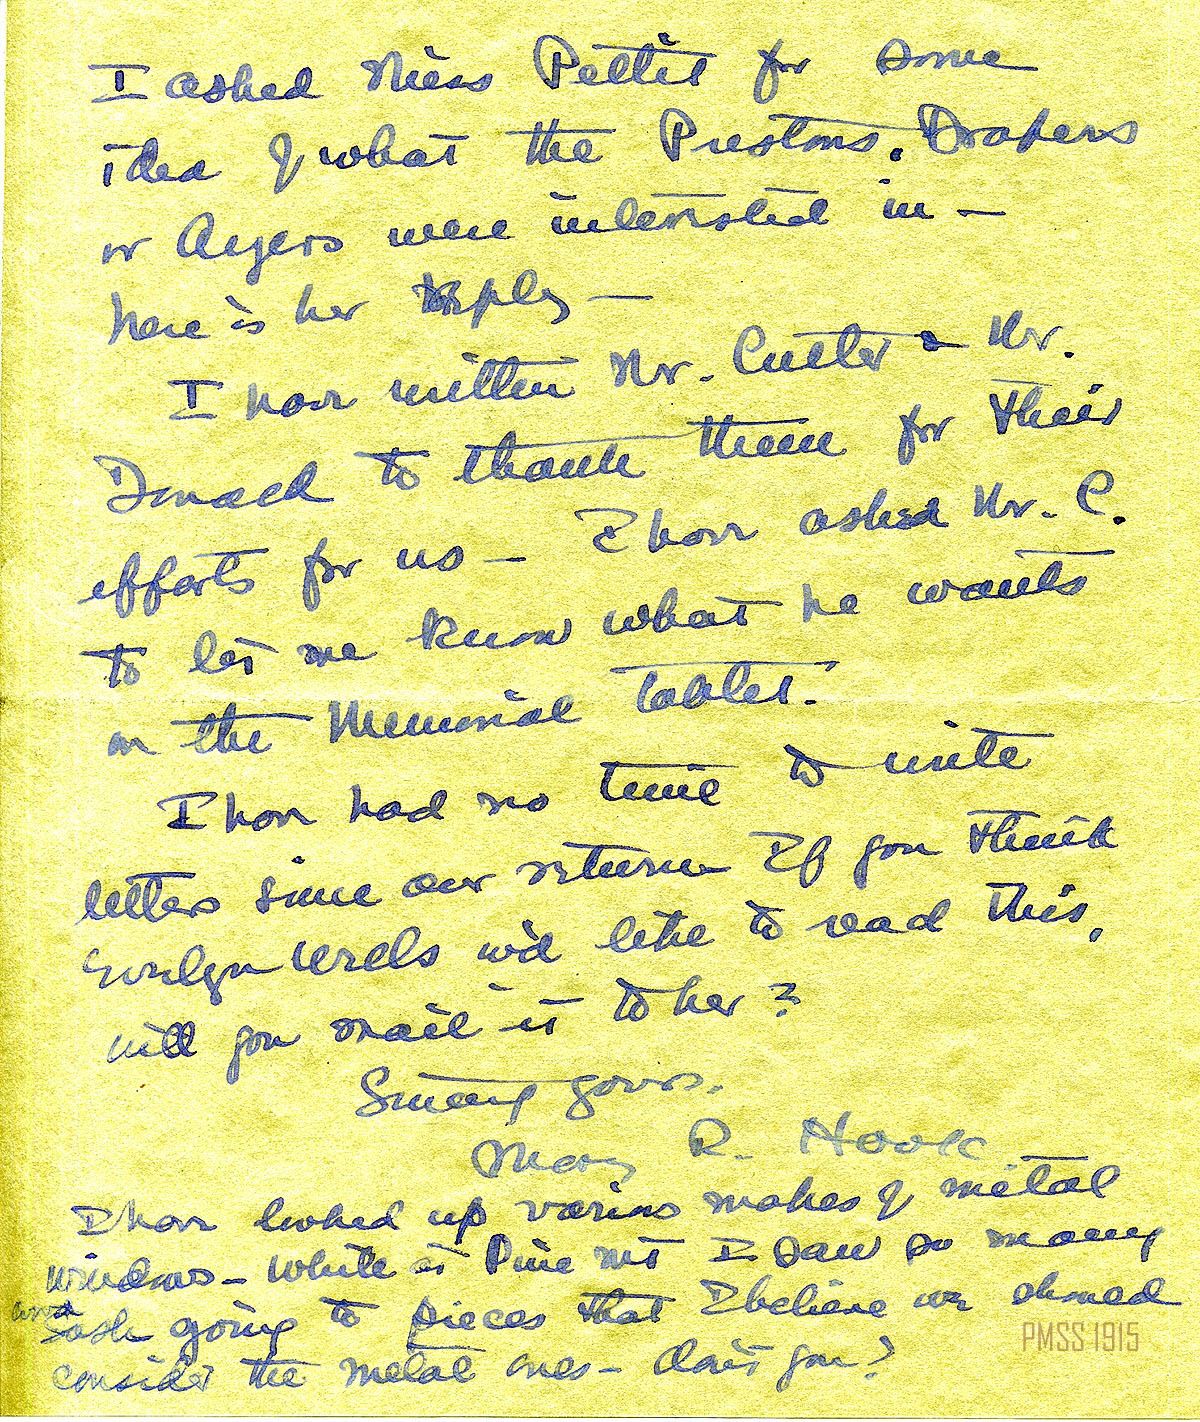 I asked Miss Pettit for some
idea of what the Prestons, Drapers
or Ayers were interested in —
here is her Reply —
I have written Mr. Cutter & Mr.
Donald to thank them for their
efforts for us — I have asked Mr. C.
to let me know what he wants
on the Memorial Tablet.
I have had no time to write
letters since our return If you think
Evelyn Wells w'd like to read this,
will you mail it to her?
Sincerely yours,
Mary R. Hook
I have looked up various makes of metal
windows — While at Pine Mt I saw so many
wood
sash going to pieces that I believe we should
consider the metal ones — don't you?
PMSS 1915